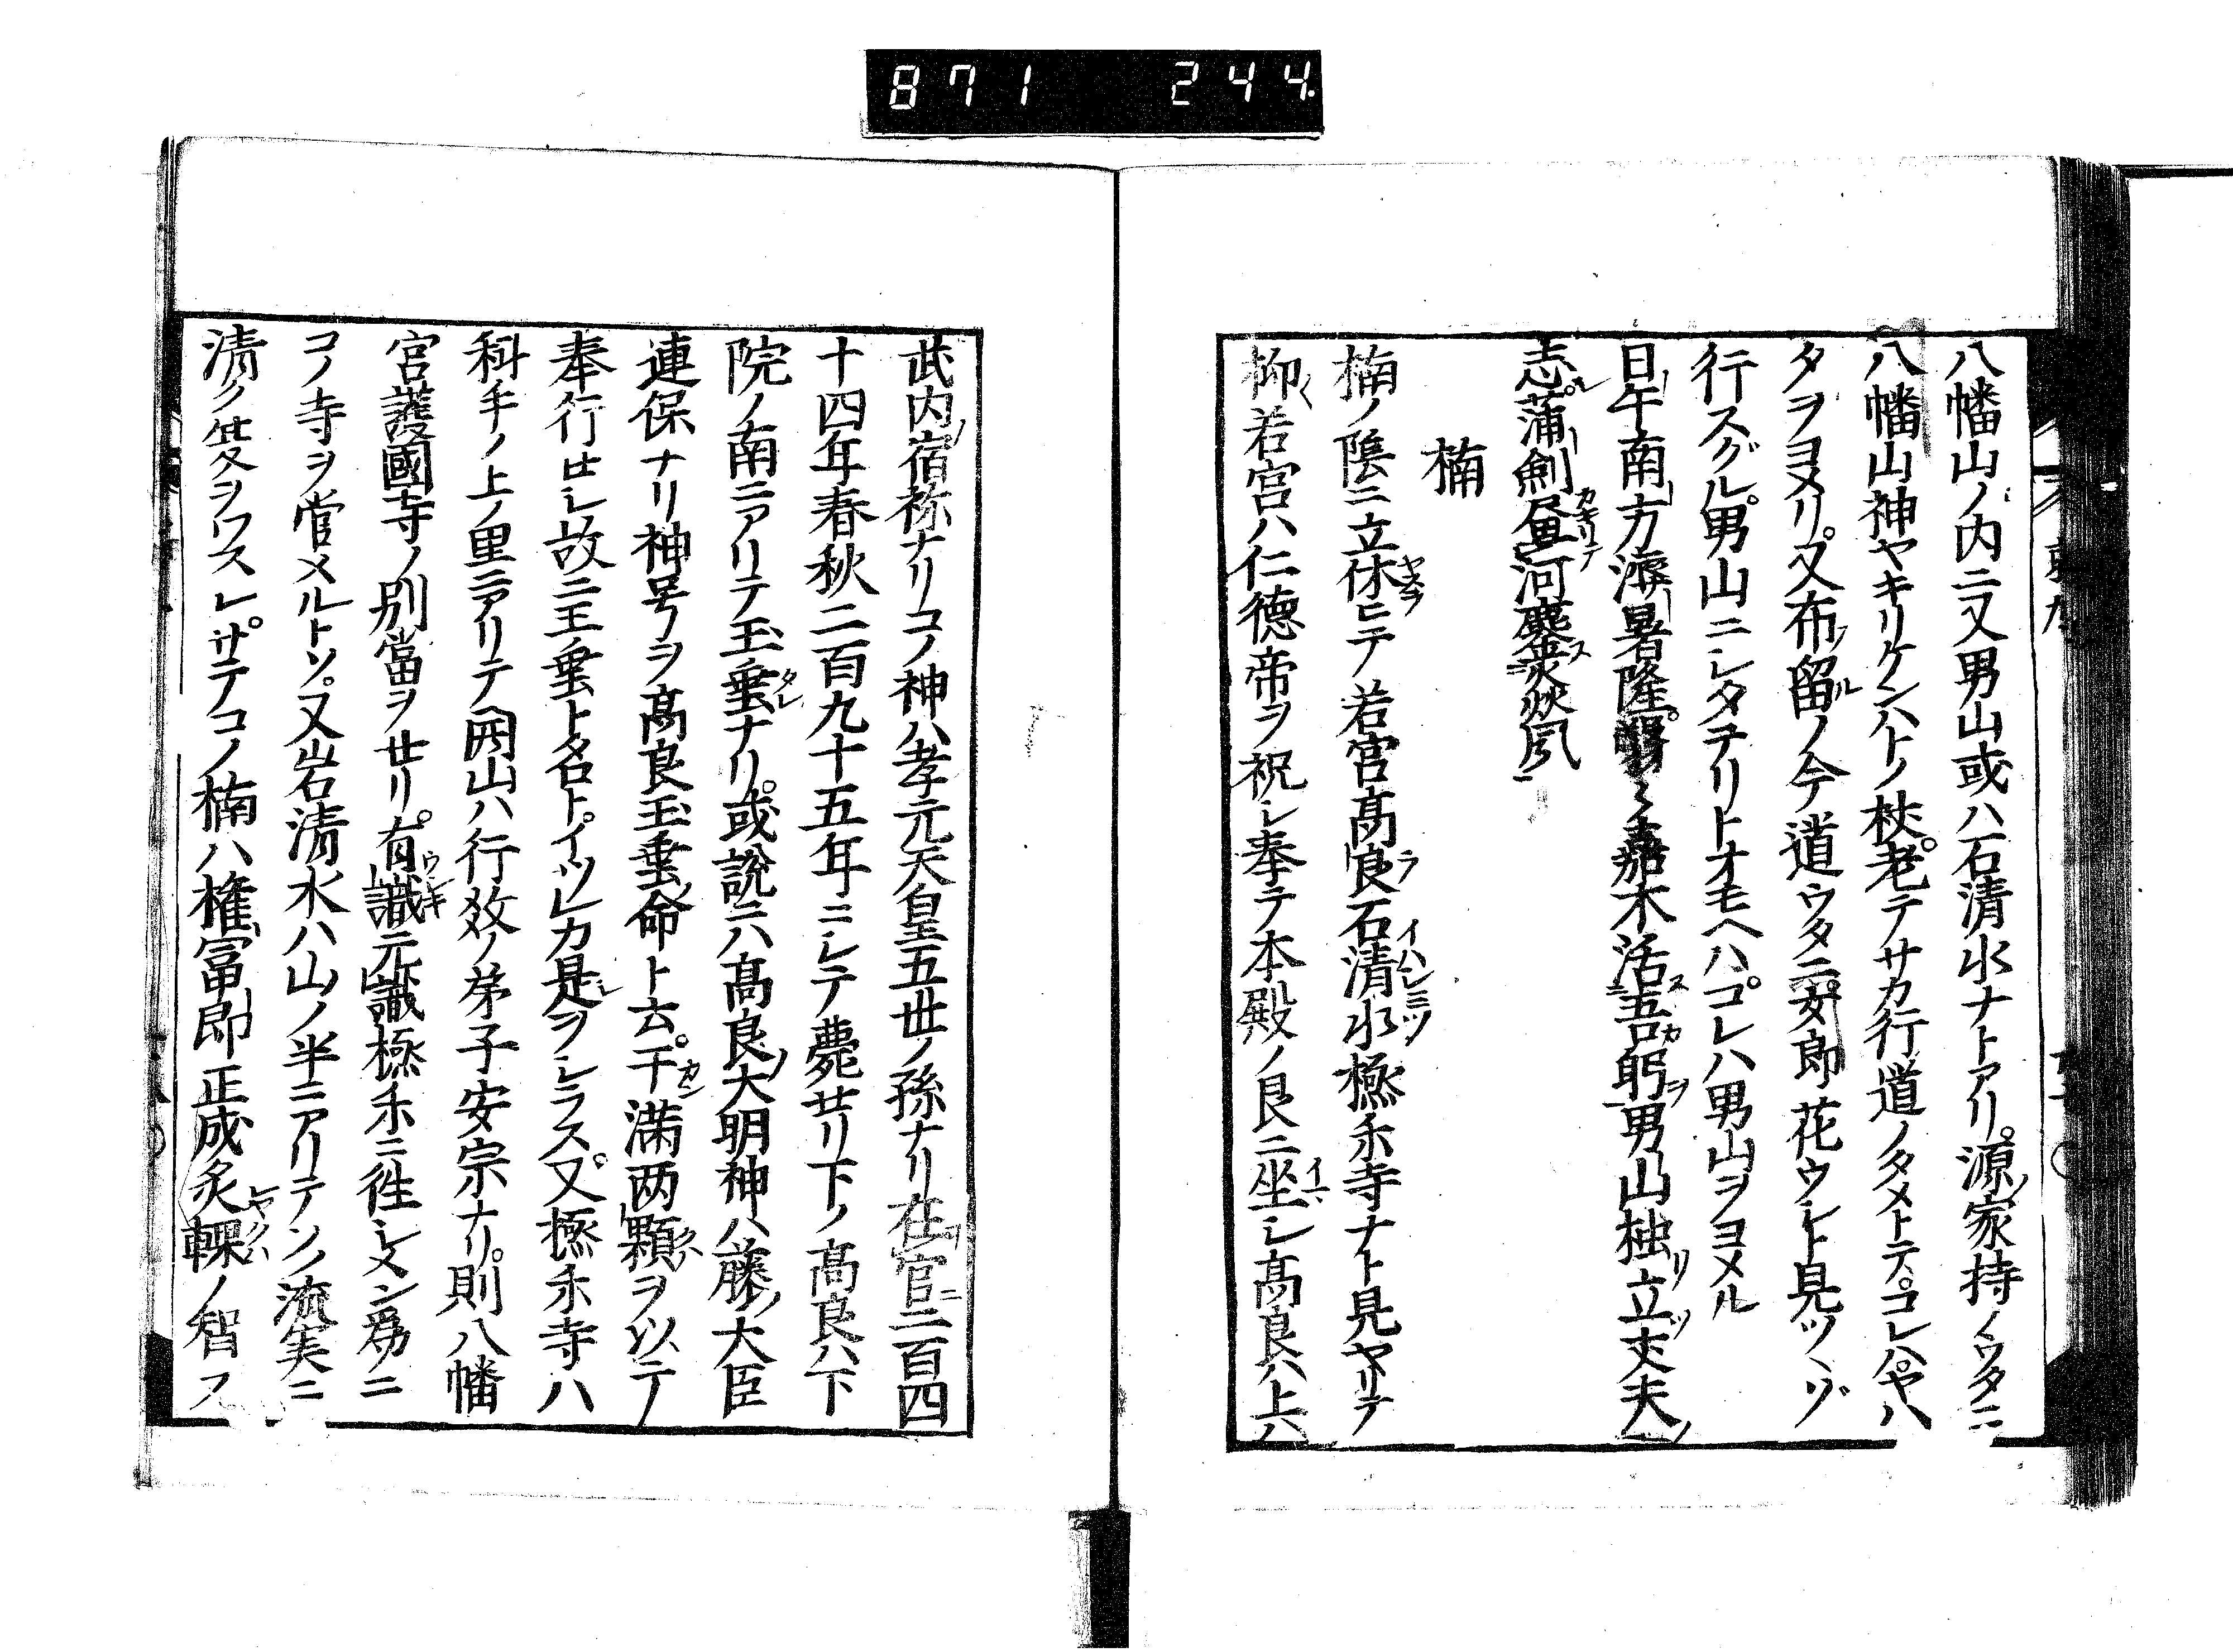 871 244
八幡山ノ内ニ又男山或ハ石清水ナトアリ。源家持ノウタニ
八幡山神ヤキリケンハトノ杖。老テサカ行道ノタメトテ。コレハヤハ
タヲヨメリ。又布留ノ今道ウタニ。女郎花ウシト見ツヽゾ
行スグル。男山ニシタテリトオモヘハ。コレハ男山ヲヨメル
日午南方溽暑隆。翳々嘉木活吾躬男山独立丈夫
志。蒲劍昼河塵裘炎風
楠
楠ノ陰ニ立休ヒテ若宮高良石清水極楽寺ナト見ヤリテ
抑若宮ハ仁徳帝ヲ祝シ奉テ本殿ノ艮ニ坐シ高良ハ上ハ
武内宿祢ナリコノ神ハ孝元天皇五世ノ孫ナリ在官二百四
十四年春秋二百九十五年ニシテ薨セリ下ノ高良ハ下
院ノ南ニアリテ玉垂ナリ。或説ニハ高良大明神ハ藤大臣
連保ナリ神号ヲ高良玉垂命ト云。干満两顆ヲ以テ
奉行セシ故ニ玉垂ト名ト。イツレカ是ヲシラス。又極楽寺ハ
科手ノ上ノ里ニアリテ開山ハ行教ノ弟子安宗ナリ。則八幡
宮護國寺ノ別當ヲセリ。有識元識極楽ニ徃シメン為ニ
コノ寺ヲ営メルトソ。又岩清水ハ山ノ半ニアリテソノ流実ニ
清ク炎ヲワスレ。サテコノ楠ハ権冨郎正成炙輠ノ智ス